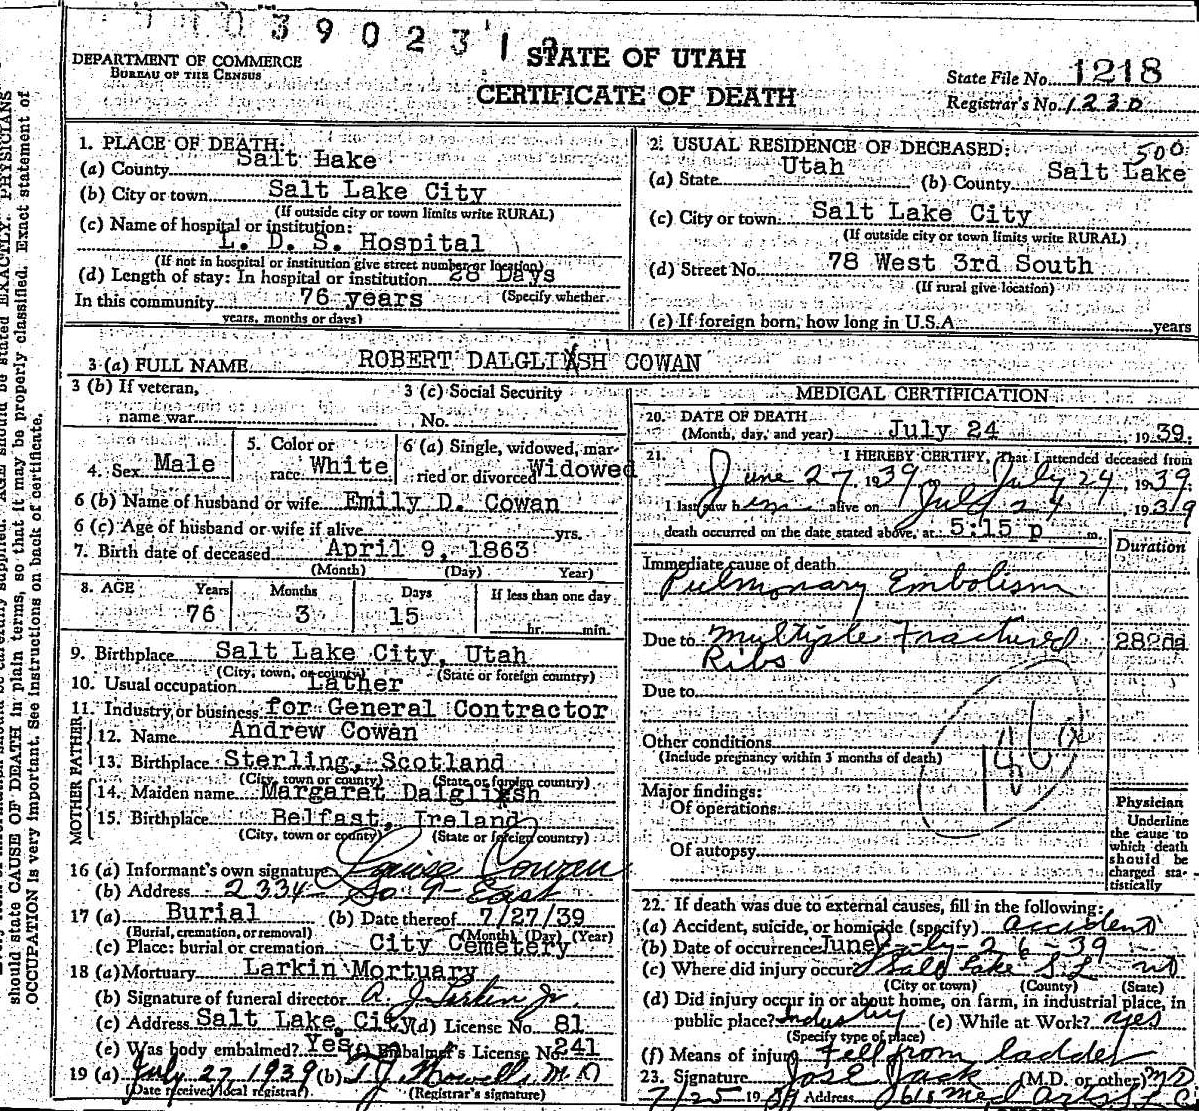 3 9 0 2 3 1
STATE OF UTAH
CERTIFICATE OF DEATH
DEPARTMENT OF COMMERCE
BUREAU OF THE CENSUS
State File No. 1218
Registrar's No. 1230
1. PLACE OF DEATH:
(a) County Salt Lake
(b) City or town Salt Lake City
(If outside city or town limits write RURAL)
(c) Name of hospital or institution:
L. D. S. Hospital
(If not in hospital or institution give street number or location)
(d) Length of stay: In hospital or institution 28 Days
In this community 76 years (Specify whether
years, months or days)
2. USUAL RESIDENCE OF DECEASED: 500
(a) State Utah (b) County Salt Lake
(c) City or town Salt Lake City
(If outside city or town limits write RURAL)
(d) Street No. 78 West 3rd South
(If rural give location)
(e) If foreign born, how long in U.S.A. years
3 (a) FULL NAME ROBERT DALGLISH COWAN
3 (b) If veteran,
name war
3 (c) Social Security
No.
4. Sex Male
5. Color or
race White
6 (a) Single, widowed, mar-
ried or divorced Widowed
6 (b) Name of husband or wife Emily D. Cowan
6 (c) Age of husband or wife if alive yrs.
7. Birth date of deceased April 9, 1863
(Month) (Day) Year)
8. AGE Years Months Days If less than one day
76 3 15 hr. min.
9. Birthplace Salt Lake City, Utah
(City, town, or county) (State or foreign country)
10. Usual occupation Lather
11. Industry or business for General Contractor
FATHER
12. Name Andrew Cowan
13. Birthplace Sterling, Scotland
(City, town or county) (State or foreign country)
MOTHER
14. Maiden name Margaret Dalglish
15. Birthplace Belfast, Ireland
(City, town or county) (State or foreign country)
16 (a) Informant's own signature Louise Cowan
(b) Address 2334 So 9 East
17 (a) Burial (b) Date thereof 7/27/39
(Burial, cremation, or removal) (Month) (Day) (Year)
(c) Place: burial or cremation City Cemetery
18 (a) Mortuary Larkin Mortuary
(b) Signature of funeral director A. J. Larkin Jr.
(c) Address Salt Lake City (d) License No. 81
(e) Was body embalmed? Yes (f) Embalmer's License No. 241
19 (a) July 27, 1939 (b) T. J. Howells M D
(Date received local registrar) (Registrar's signature)
MEDICAL CERTIFICATION
20. DATE OF DEATH
(Month, day, and year) July 24 1939.
21. I HEREBY CERTIFY, That I attended deceased from
June 27, 1939 to July 24, 1939.
I last saw him alive on July 24 1939
death occurred on the date stated above, at 5:15 p m.
Duration
Immediate cause of death
Pulmonary Embolism
Due to Multiple Fractured
Ribs
28 da
Due to
Other conditions
(Include pregnancy within 3 months of death)
Major findings:
Of operations
Of autopsy
Physician
Underline
the cause to
which death
should be
charged sta-
tistically
22. If death was due to external causes, fill in the following:
(a) Accident, suicide, or homicide (specify) Accident
(b) Date of occurrence June 26-39
(c) Where did injury occur? Salt Lake S.L.
(City or town) (County) (State)
(d) Did injury occur in or about home, on farm, in industrial place, in
public place? Industry (e) While at Work? Yes
(Specify type of place)
(f) Means of injury Fell from ladder
23. Signature Jos E Jack (M.D. or other) M D
7/25 1939 Address Med Arts
should state CAUSE OF DEATH in plain terms, so that it may be properly classified. Exact statement of
OCCUPATION is very important. See instructions on back of certificate.